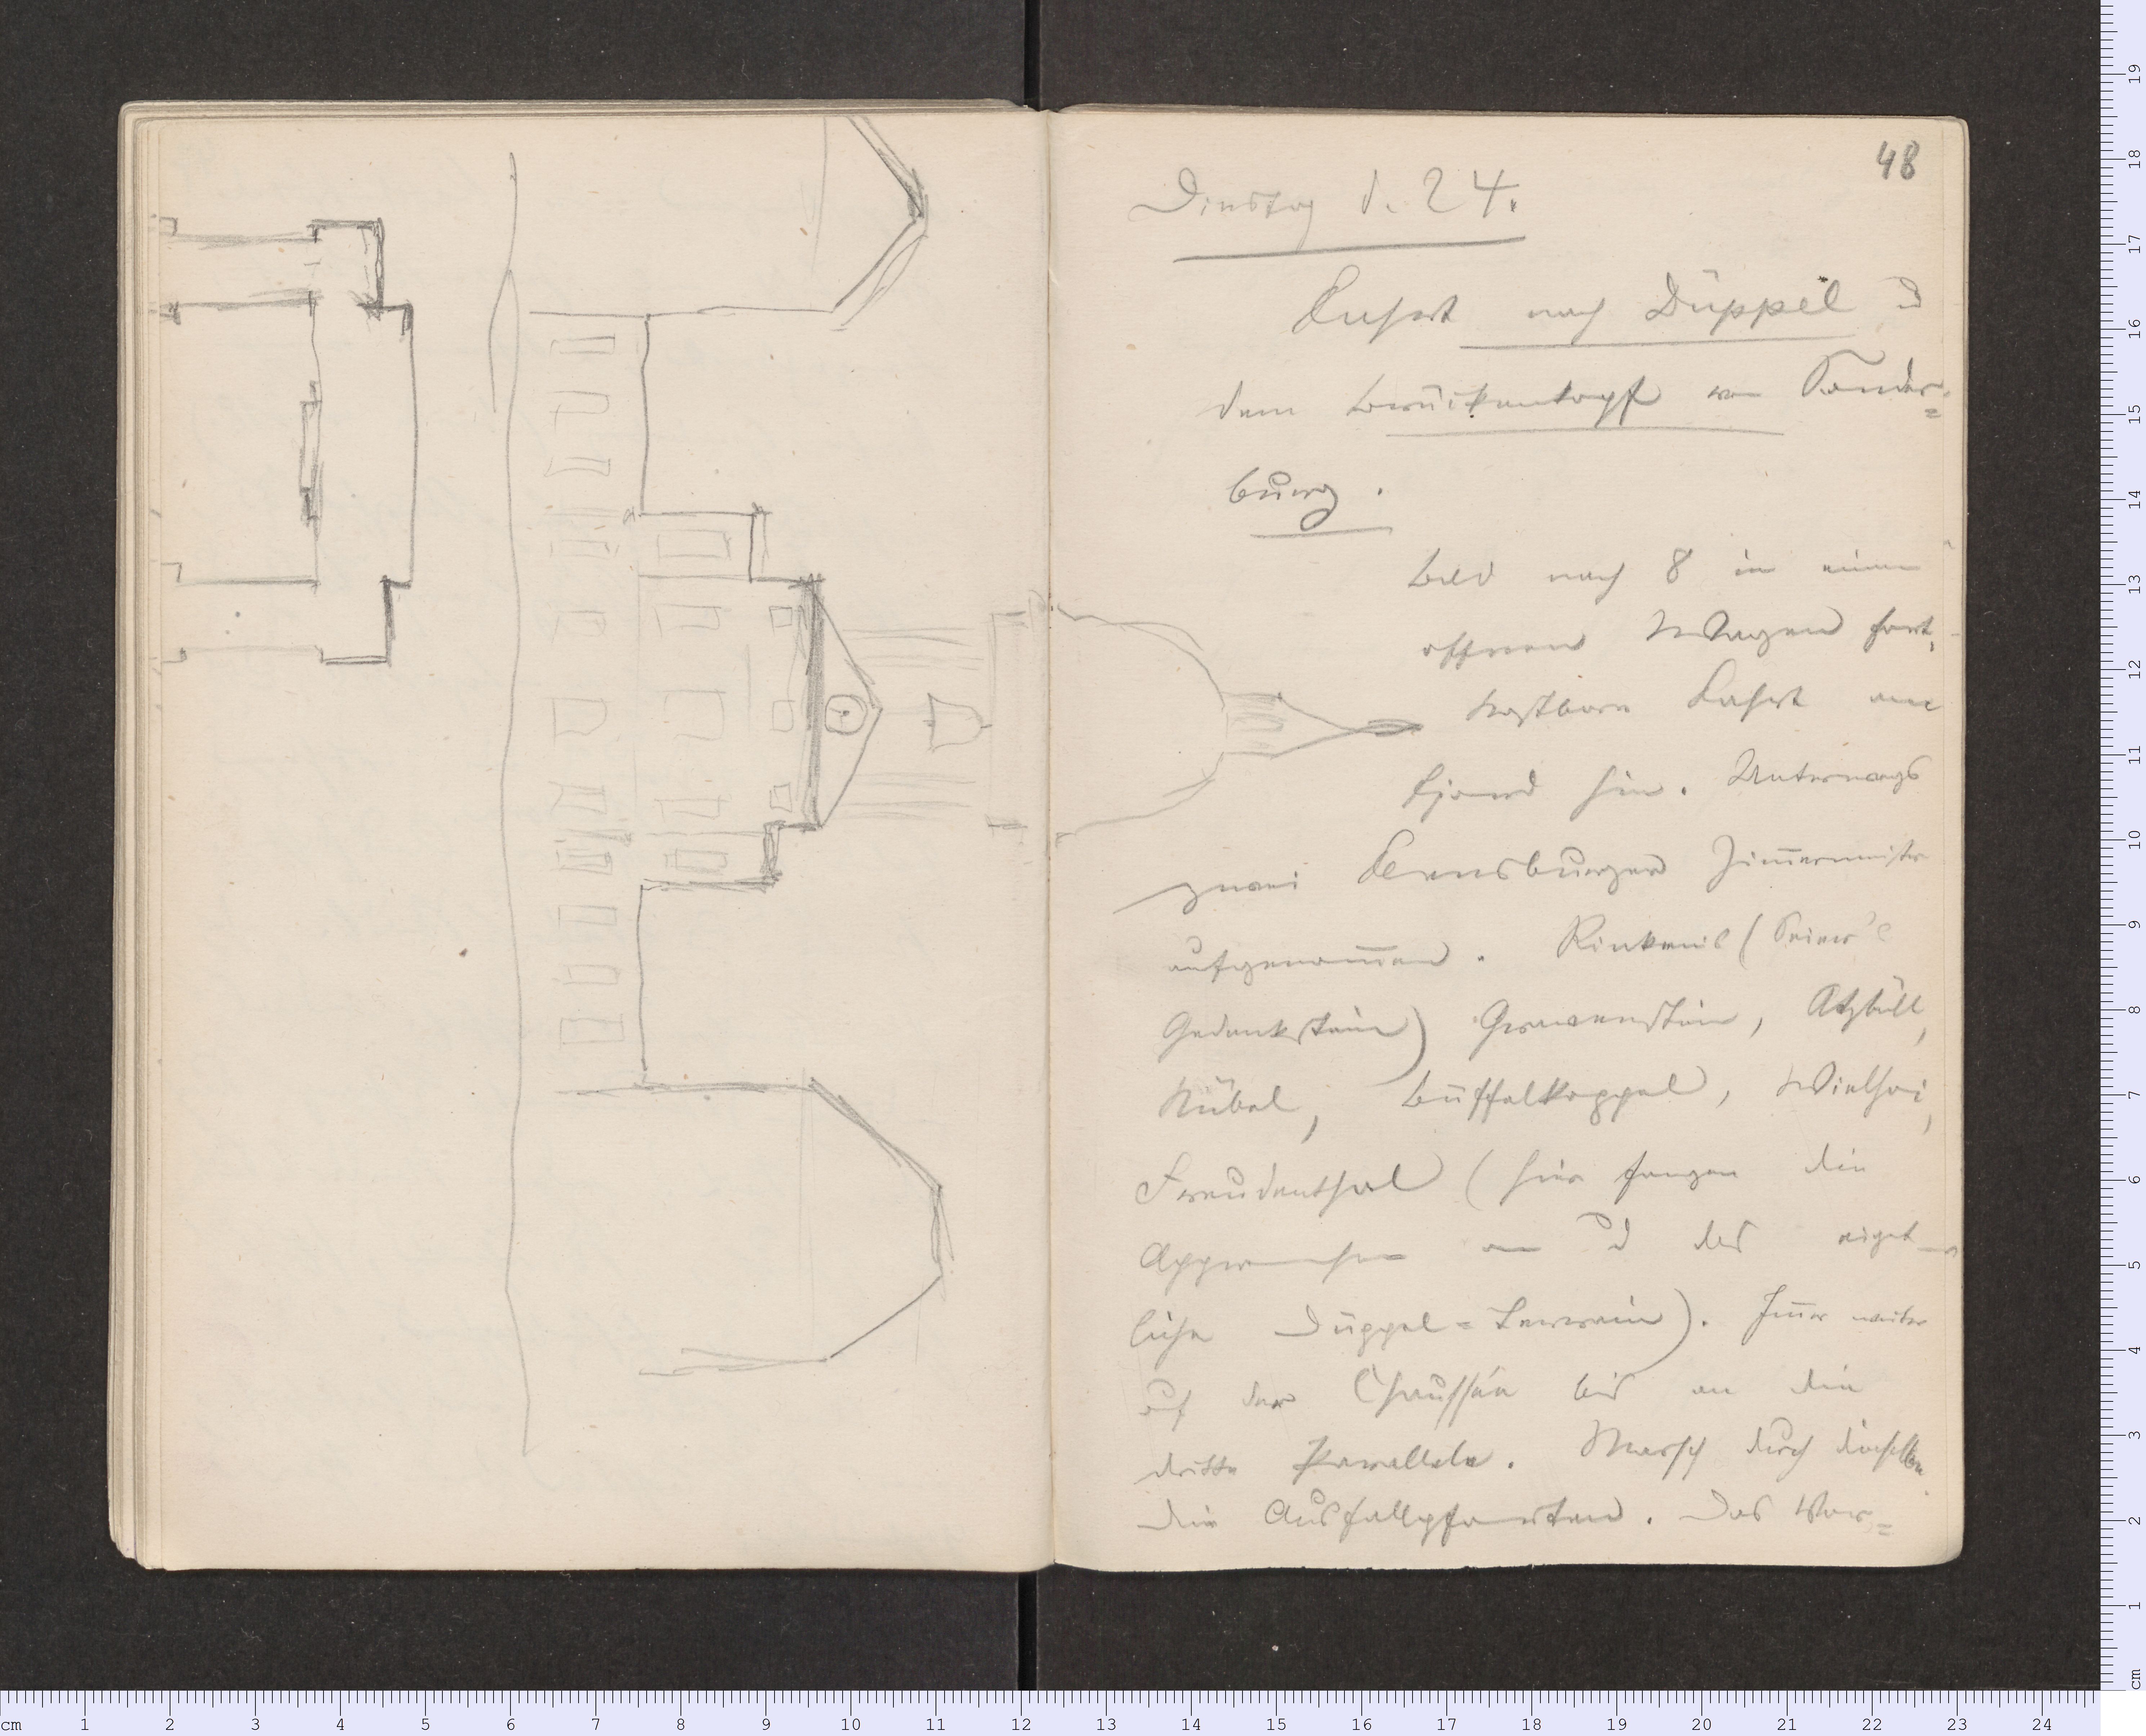 48
Dinstag d. 24.
Fahrt nach Düppel u
dem Brückenkopf von Sonder=
burg.
Bald nach 8 in einem
offnen Wagen fort,
kostbare Fahrt am
Fjord hin. Unterwegs
zwei Flensburger Zimermeister
aufgenomen. Rinkenis (
Gedenkstein) Gravenstein, Atzbüll,
Nübel, Büffelkoppel, Wielhoi,
Freudenthal (hier fangen die
Approchen an u das eigent
liche Düppel=Terrain). Imer weiter
auf der Chaussée bis an die
dritte Parallele. Marsch durch dieselbe
die Ausfallpforten. Das Vor=